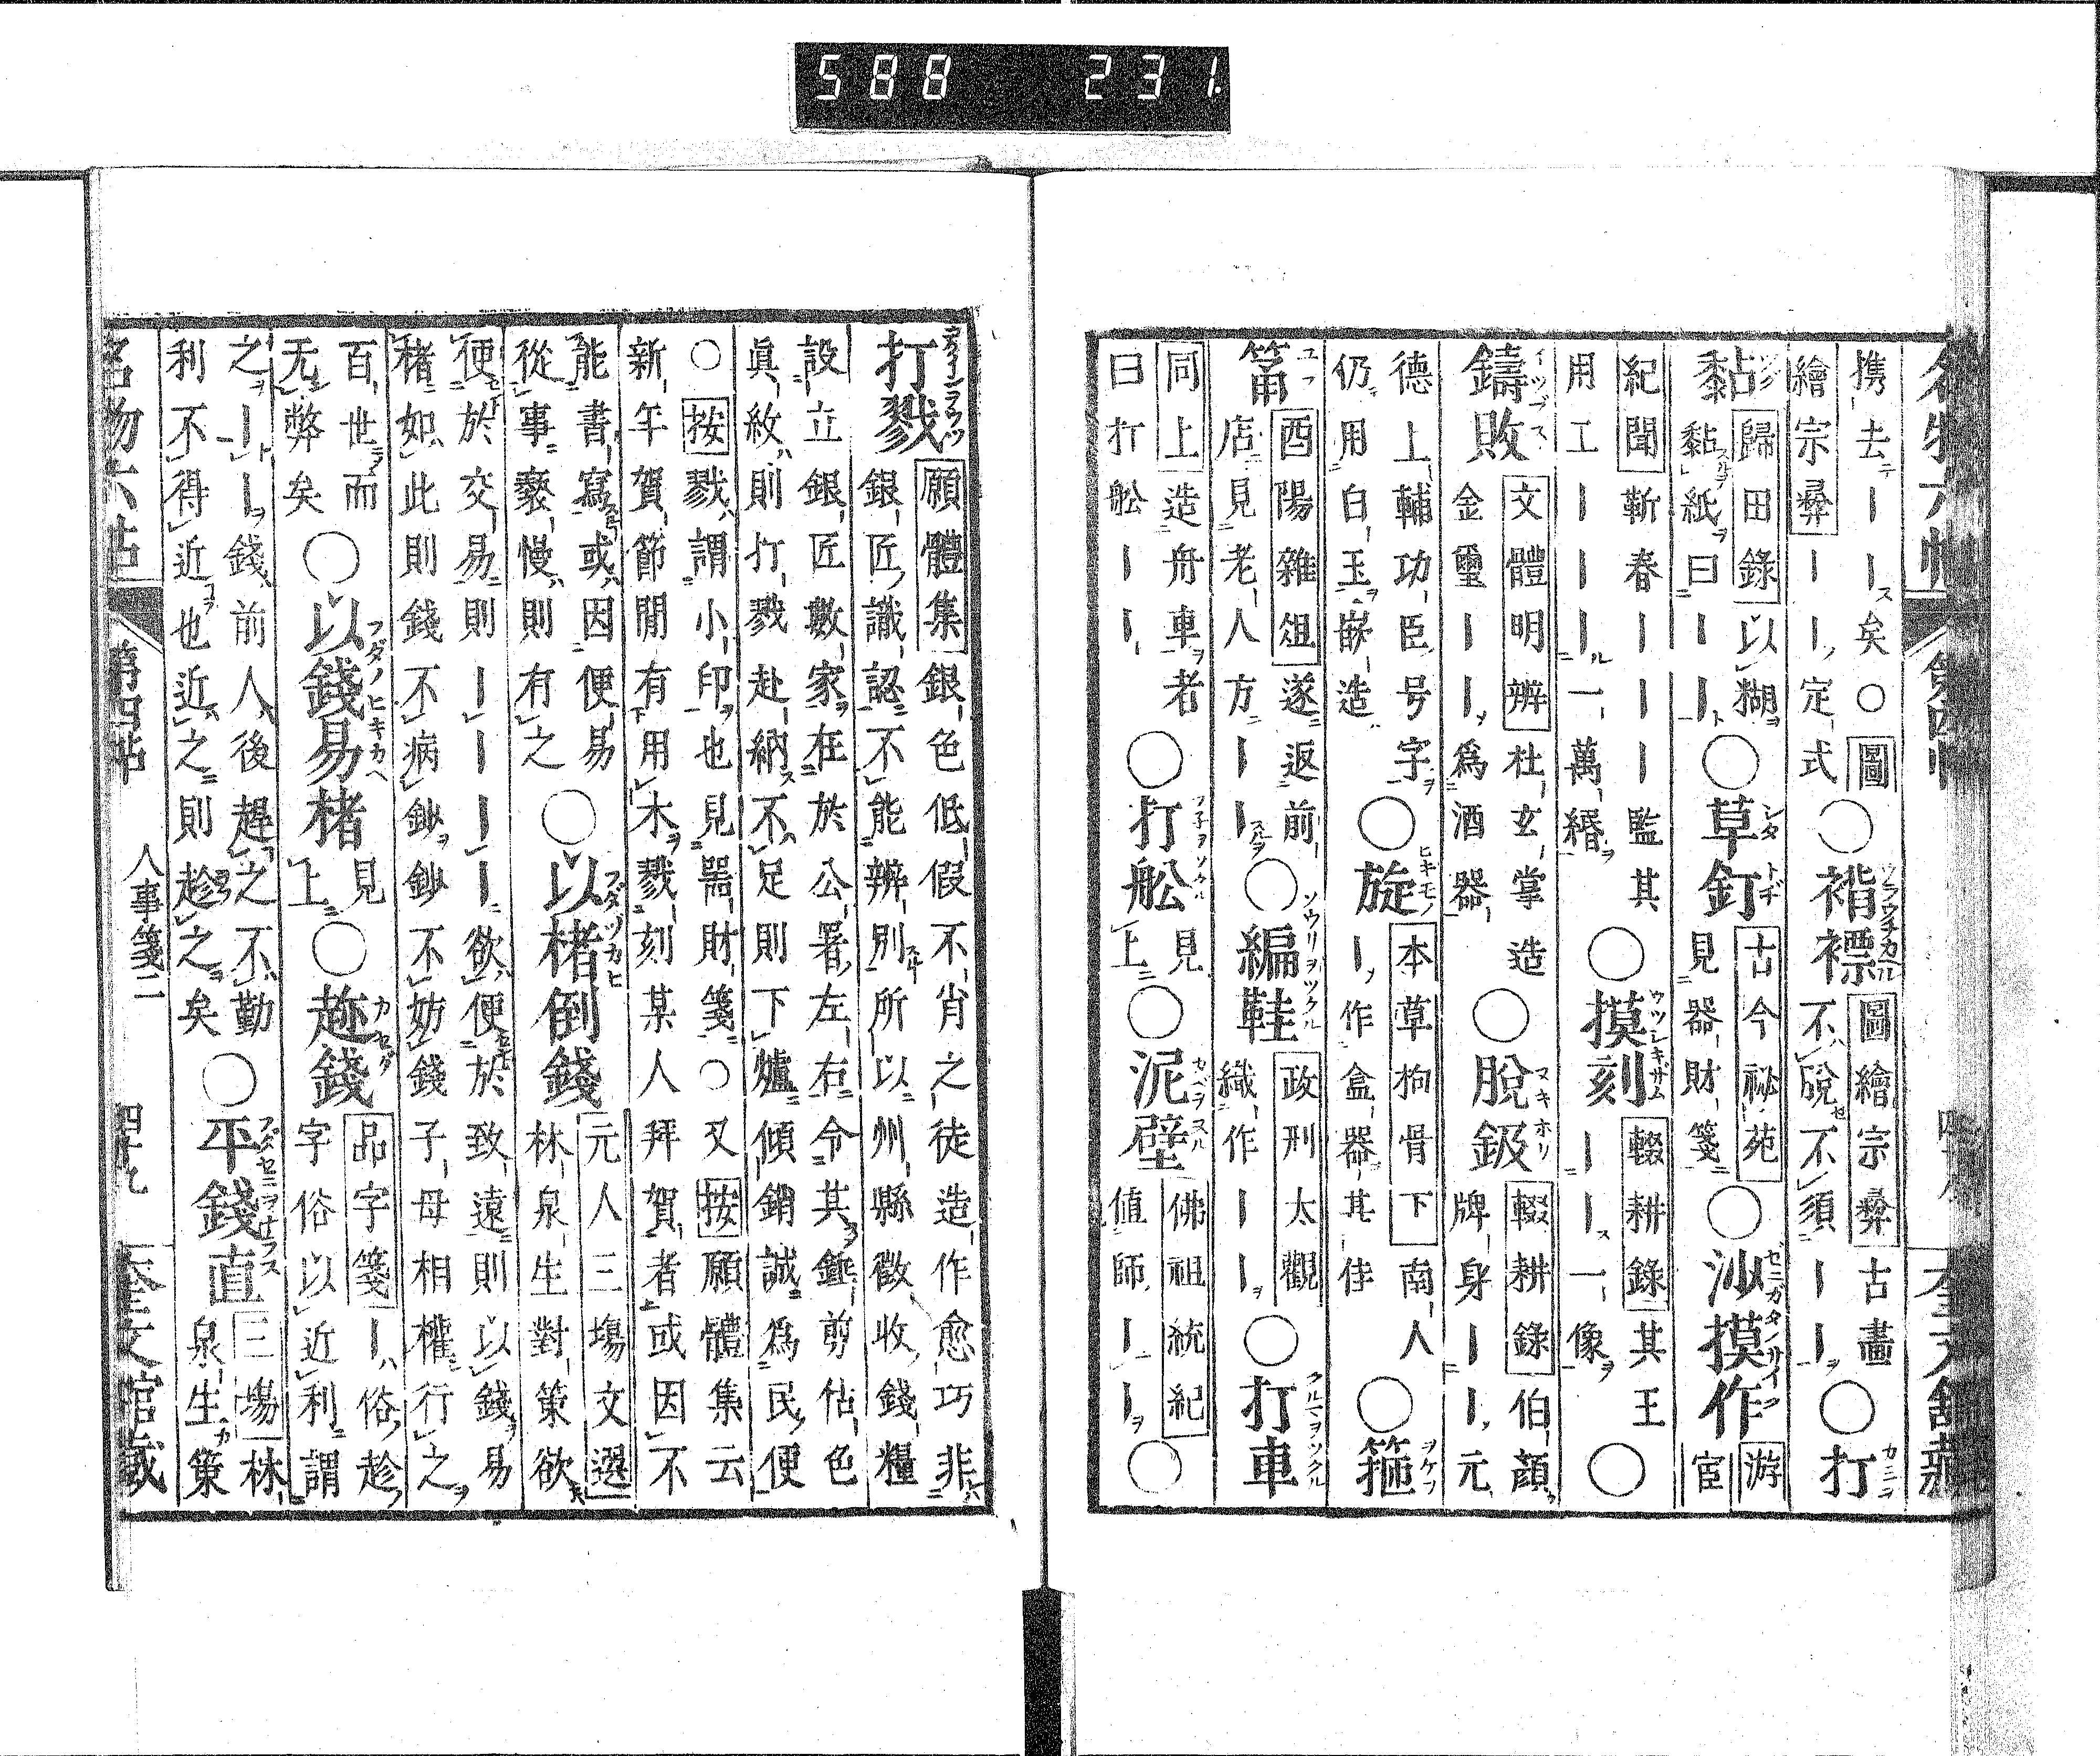 588 231.
携去ーース矣○圖
繪宗彝ーー定式○褙褾圖繪宗彝古畫
不脱不須ーー○打
黏歸田錄以糊
黏紙曰ーー○草釘古今祕苑
見器財箋○沙摸作游宦
紀聞靳春ーーー監其
用工ーーー一萬緡○摸刻輟耕錄其王
ーー一像○
鑄敗文體明辨杜玄掌造
金璽ーー爲酒器○脫鈒輟耕錄伯顔
牌身ーー元
德上輔功臣号字
仍用白玉嵌造○旋本草枸骨下南人
ー作盒器甚佳○箍
筩酉陽雜俎遂返前
店見老人方ーー○編鞋政刑太觀
織作ーー○打車
同上造舟車者
曰打舩ーー○打舩見
上○泥壁佛祖統紀
値師ーー○
打戮願體集銀色低假不肖之徒造作愈巧非
銀匠識認不能辨別所以州縣徵收錢糧
設立銀匠數家在於公署左右令其鏨剪估色
眞紋則打戮赴納不足則下爐傾銷誠爲民便
○按戮謂小印也見器財箋○又按願體集云
新年賀節閒有用木戮刻某人拜賀者或因不
能書寫或因便易
從事褻慢則有之○以楮倒錢元人三塲文選
林泉生對策欲
便於交易則ーーーー欲便於致遠則以錢易
楮如此則錢不病鈔鈔不妨錢子母相權行之
百世而
无弊矣○以錢易楮見
上○趂錢品字箋ー俗趁
字俗以近利謂
之ーー錢前人後趕之不勤
利不得近也近之則趁之矣○平錢直三場林
泉生策
名物六帖 第四帖 人事箋二 四十九 奎文館藏